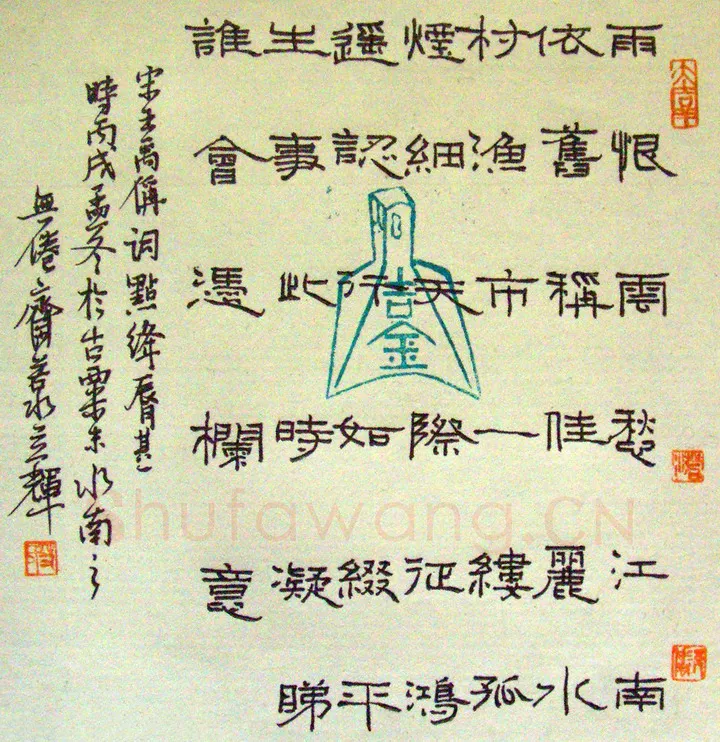 雨恨雲愁江南
依舊稱佳麗水
村漁市一縷孤
煙細天際征鴻
遙認行如綴平
生事此時凝睇
誰會憑欄意
宋王禹偁词點絳脣其一
時丙戌孟冬於古粟末水南之
無倦齋若水立輝
吉金
Shufawang.CN